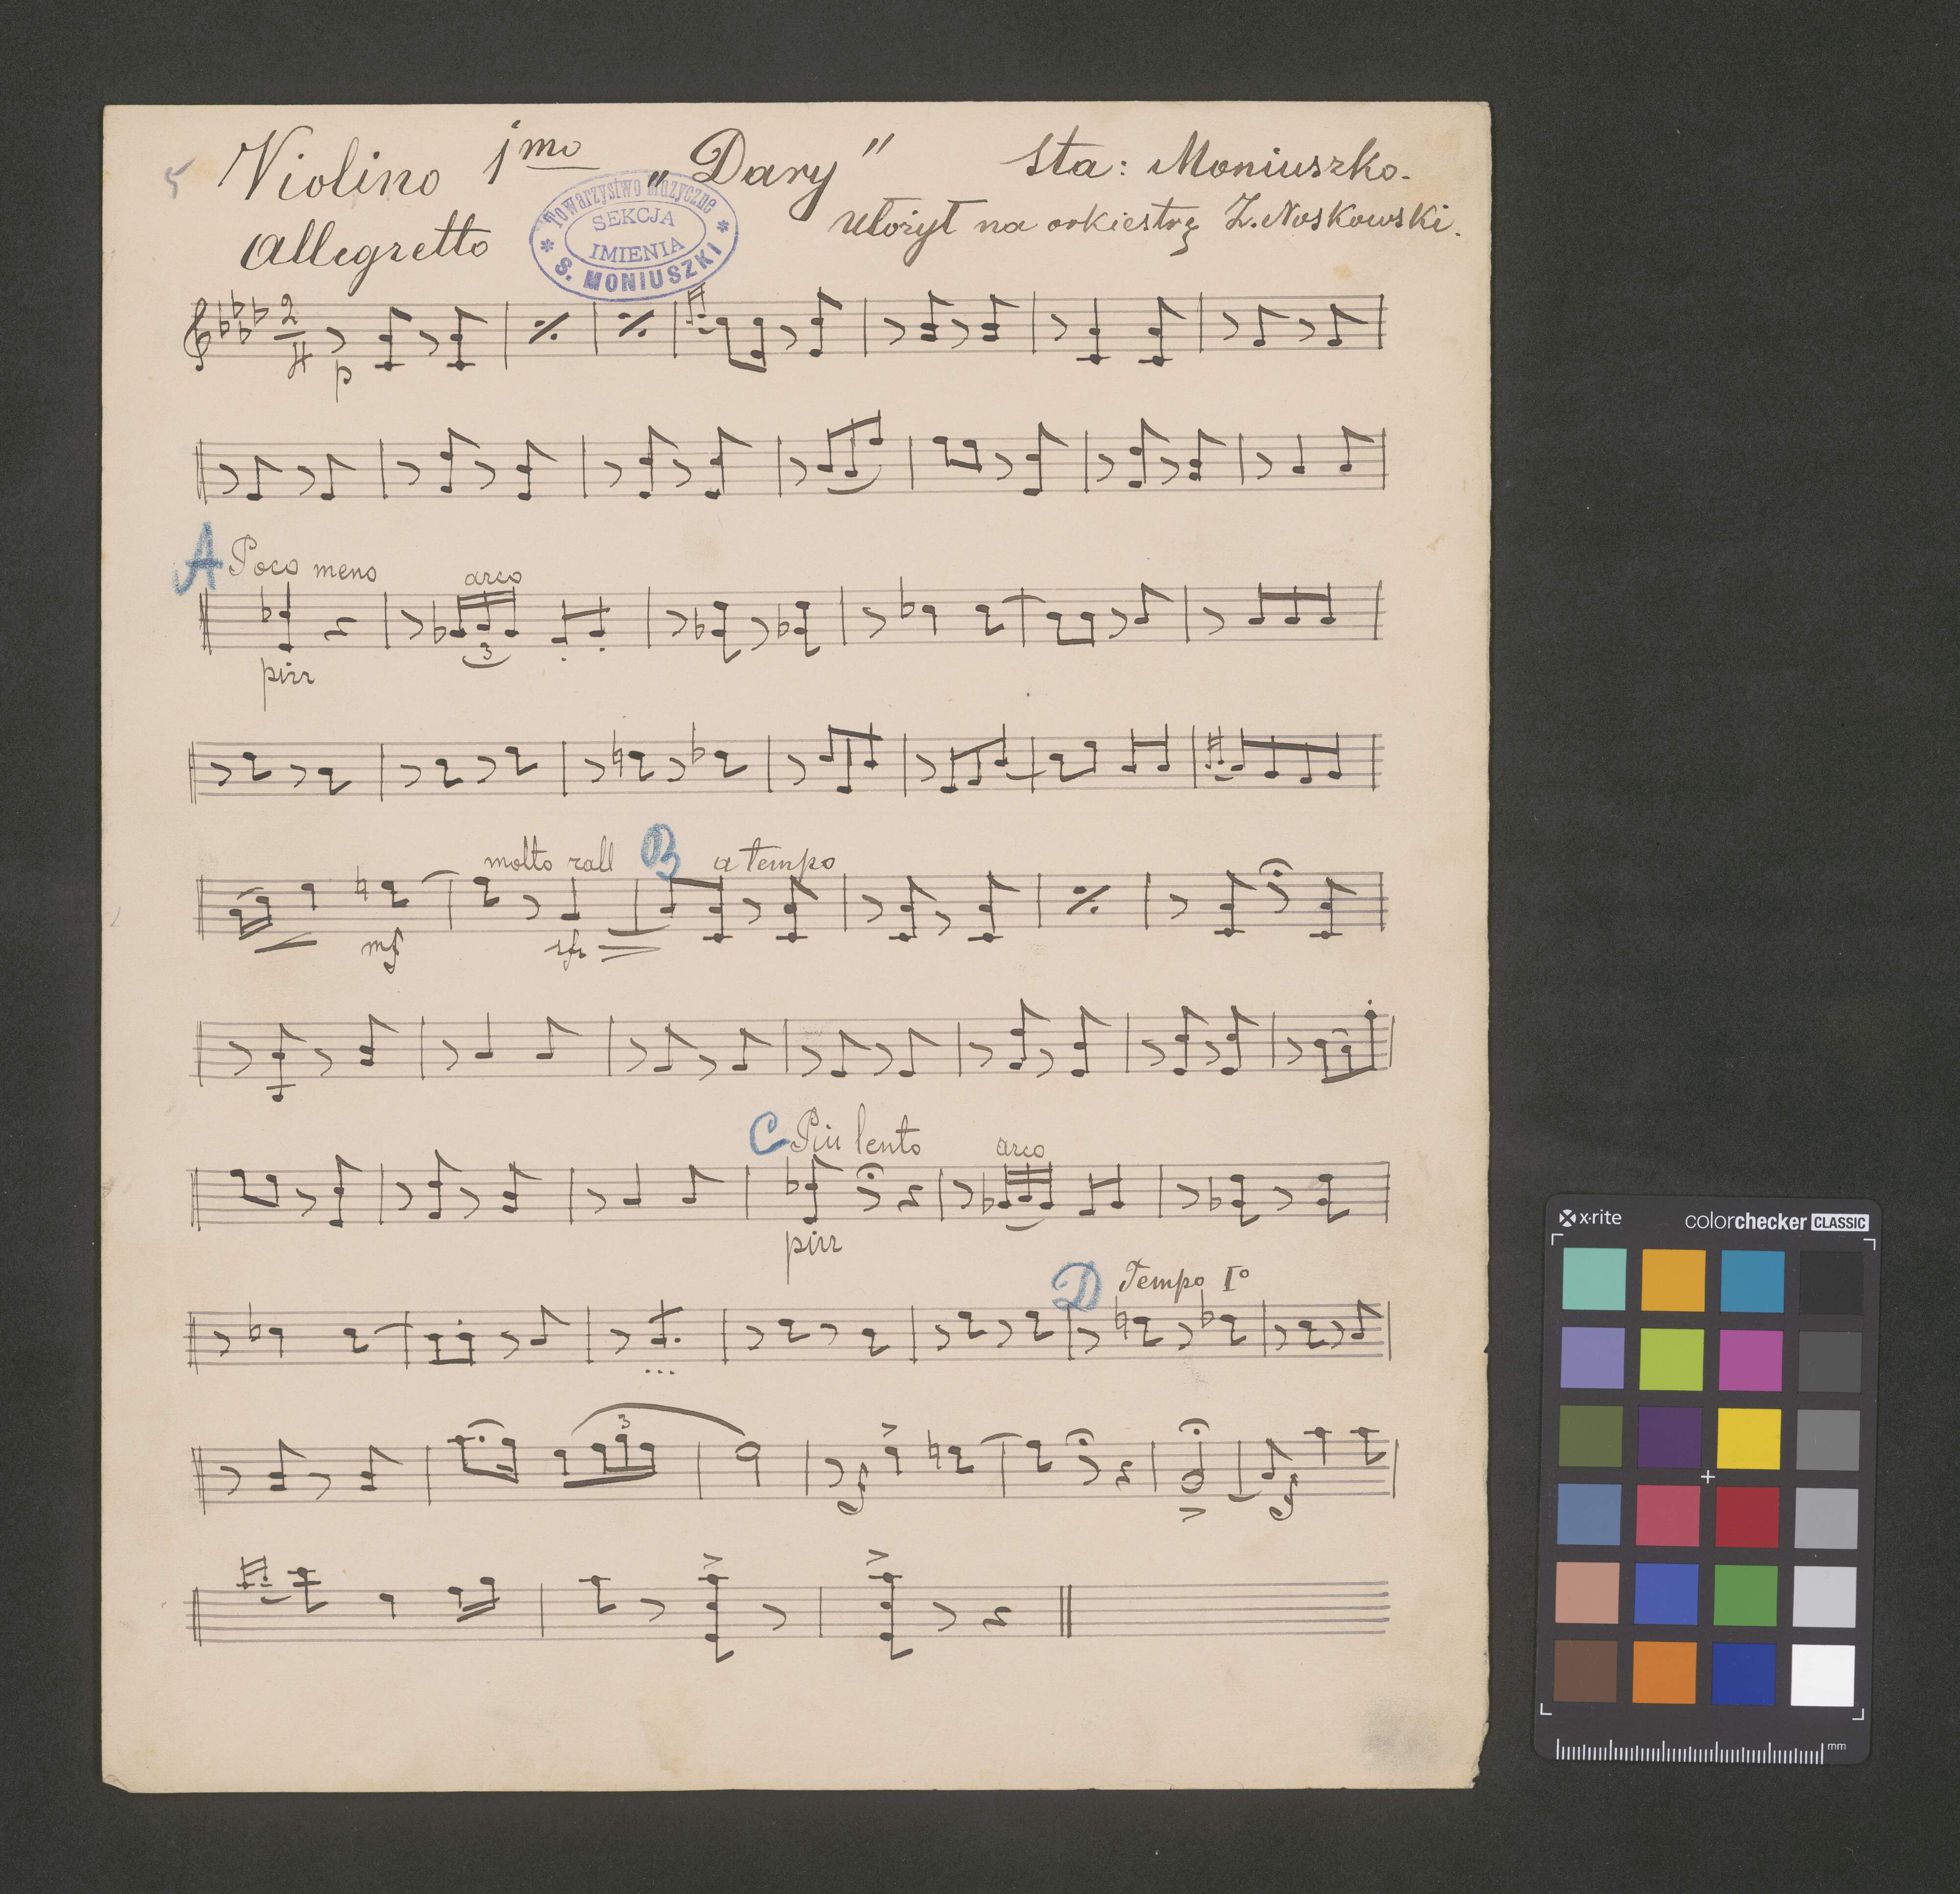 5 Violino 1mo „Dary" Sta: Moniuszko.
Ułożył na orkiestrę Z. Noskowski.
Allegretto
Towarzystwo Muzyczne
SEKCJA
IMIENIA
S. MONIUSZKI
2
4
p
A Poco meno arco
3
pizz
molto rall B a tempo
mf sfz
C Più lento arco
pizz
D Tempo Iº
3
f f
x·rite colorchecker CLASSIC
mm